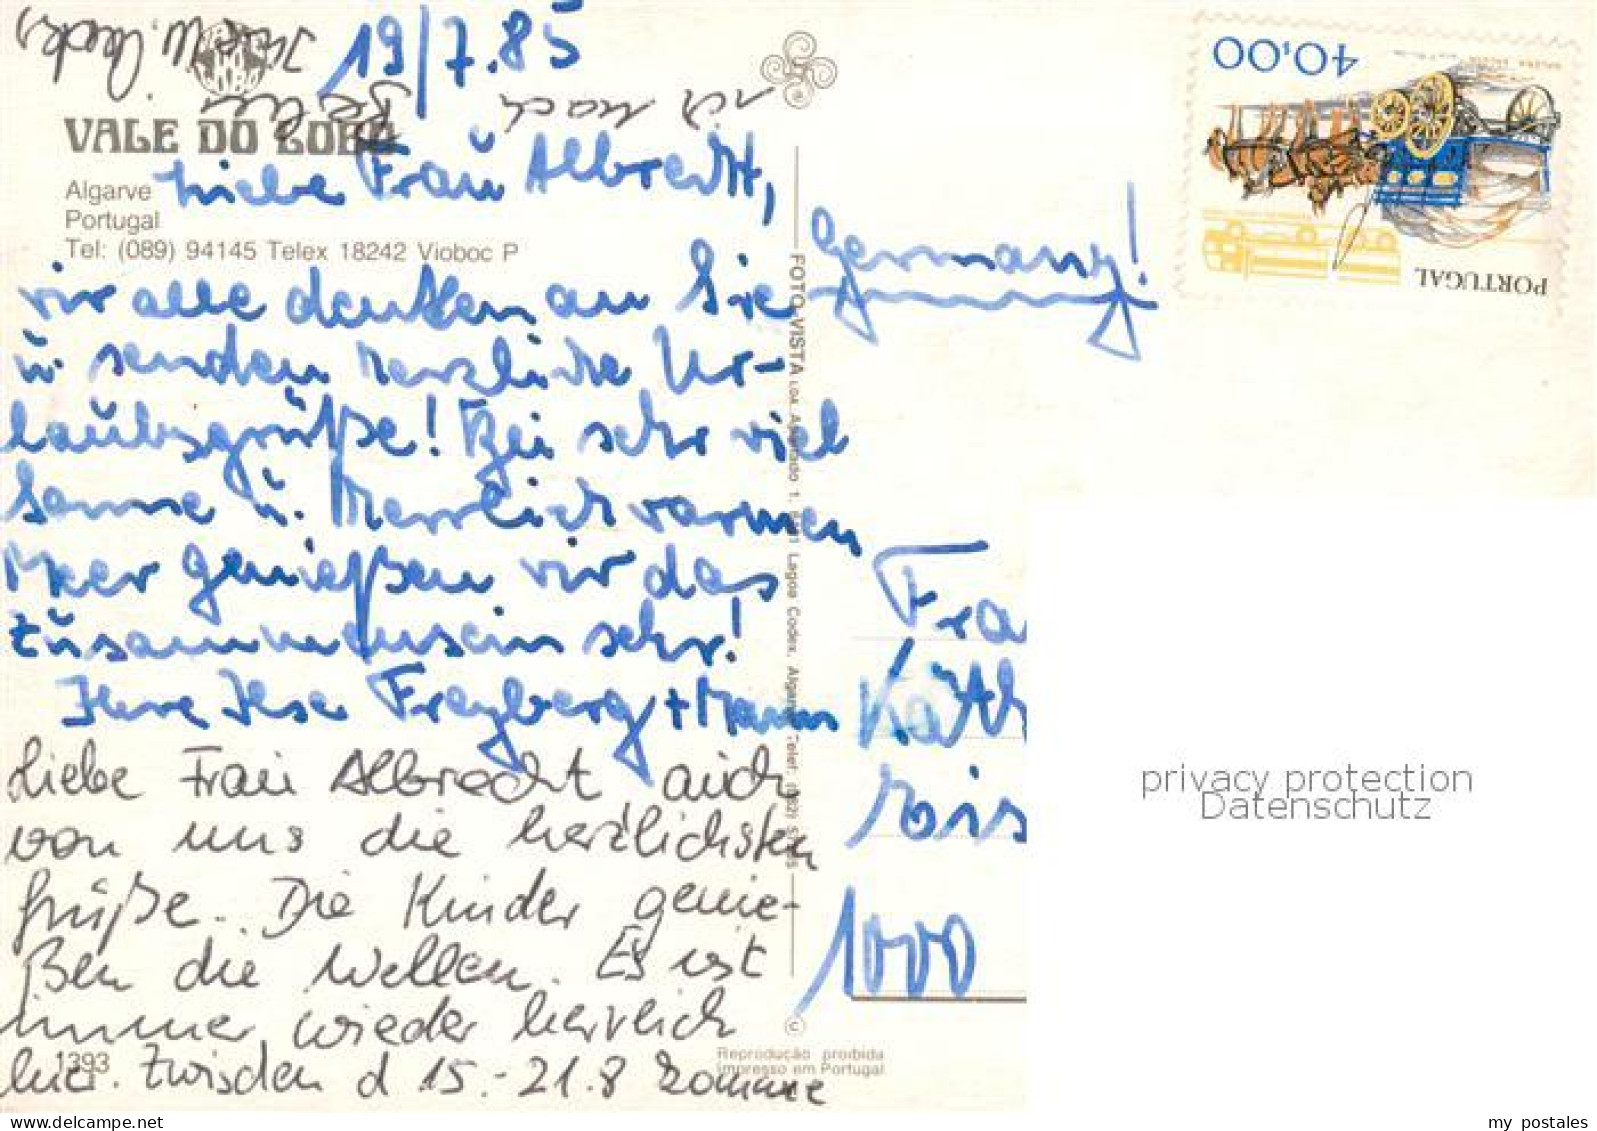 19/7.85
VALE DO LOBO
Algarve
Portugal
Tel: (089) 94145 Telex 18242 Vioboc P
Liebe Frau Albrecht,
wir alle denken an Sie
u. senden herzliche Ur-
laubsgrüße! Bei sehr viel
Sonne u. herrlich warmen
Meer genießen wir das
Zusammensein sehr!
Ihre Ilse Freyberg + Mann
Liebe Frau Albrecht auch
von uns die herzlichsten
Grüße. Die Kinder genie-
ßen die Wellen. Es ist
immer wieder herrlich
hier. Zwischen d 15.-21.8 komme
ich nach Berlin
Ihre U.
1393
FOTO VISTA
Lagoa Codex, Algarve
©
Reprodução proibida
Impresso em Portugal
Germany!
Fra
Käth
1000
PORTUGAL
40,00
privacy protection
Datenschutz
my postales
www.delcampe.net